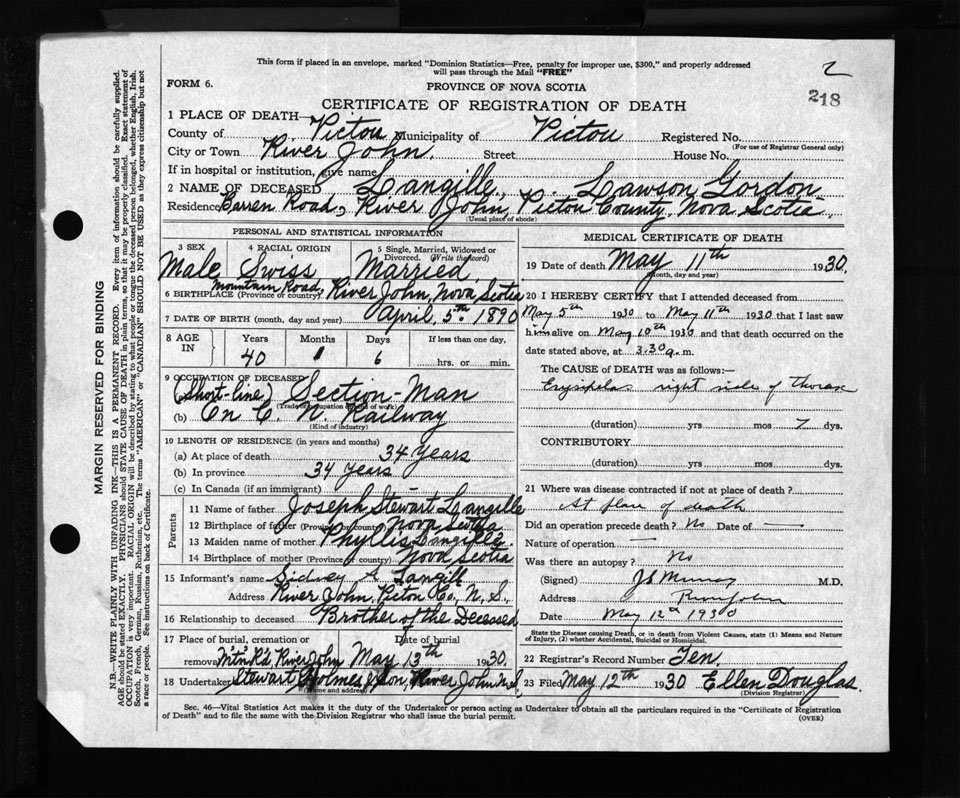 This form if placed in an envelope, marked "Dominion Statistics—Free, penalty for improper use, $300," and properly addressed
will pass through the Mail "FREE"
2
218
FORM 6.
PROVINCE OF NOVA SCOTIA
CERTIFICATE OF REGISTRATION OF DEATH
1 PLACE OF DEATH—
County of Pictou Municipality of Pictou Registered No.
(For use of Registrar General only)
City or Town River John. Street House No.
If in hospital or institution, give name
2 NAME OF DECEASED Langille, Lawson Gordon
Residence Barren Road, River John, Pictou County, Nova Scotia.
(Usual place of abode)
PERSONAL AND STATISTICAL INFORMATION
3 SEX 4 RACIAL ORIGIN 5 Single, Married, Widowed or Divorced. (Write the word)
Male Swiss Married
Mountain Road,
6 BIRTHPLACE (Province or country) River John, Nova Scotia
7 DATE OF BIRTH (month, day and year) April, 5th. 1890
8 AGE IN Years Months Days If less than one day,
40 1 6 hrs. or min.
9 OCCUPATION OF DECEASED
(Short-line) Section-Man
(Trade or occupation or kind of work)
(b) On C. N. Railway
(Kind of industry)
10 LENGTH OF RESIDENCE (in years and months)
(a) At place of death 34 Years
(b) In province 34 Years
(c) In Canada (if an immigrant)
Parents
11 Name of father Joseph Stewart Langille
12 Birthplace of father (Province or country) Nova Scotia
13 Maiden name of mother Phyllis Langille.
14 Birthplace of mother (Province or country) Nova Scotia
15 Informant's name Sidney A Langill
Address River John, Pictou Co., N.S.,
16 Relationship to deceased Brother of the Deceased
17 Place of burial, cremation or removal Date of burial
Mtn R'd, River John May 13th 1930.
18 Undertaker Stewart Holmes & Son, River John N.S.
(Name and address)
MEDICAL CERTIFICATE OF DEATH
19 Date of death May 11th 1930.
(Month, day and year)
20 I HEREBY CERTIFY that I attended deceased from
May 5th 1930 to May 11th 1930 that I last saw
him alive on May 10th 1930 and that death occurred on the
date stated above, at 3.30 a. m.
The CAUSE of DEATH was as follows:—
Erysipelas right side of thorax
(duration) yrs mos 7 dys.
CONTRIBUTORY
(duration) yrs. mos. dys.
21 Where was disease contracted if not at place of death?
At place of death
Did an operation precede death? No Date of —
Nature of operation —
Was there an autopsy? No
(Signed) J S Murray M.D.
Address River John
Date May 12th 1930
State the Disease causing Death, or in death from Violent Causes, state (1) Means and Nature
of Injury, (2) whether Accidental, Suicidal or Homicidal.
22 Registrar's Record Number Ten.
23 Filed May 12th 1930 Ellen Douglas.
(Division Registrar)
Sec. 46—Vital Statistics Act makes it the duty of the Undertaker or person acting as Undertaker to obtain all the particulars required in the "Certificate of Registration
of Death" and to file the same with the Division Registrar who shall issue the burial permit.
(OVER)
MARGIN RESERVED FOR BINDING
N.B.—WRITE PLAINLY WITH UNFADING INK—THIS IS A PERMANENT RECORD. Every item of information should be carefully supplied.
AGE should be stated EXACTLY. PHYSICIANS should STATE CAUSE OF DEATH in plain terms, so that it may be properly classified. Exact statement of
OCCUPATION is very important. RACIAL ORIGIN will be described by stating to what people or tongue the deceased person belonged, whether English, Irish,
Scotch, French, German, Russian, Ruthenian, etc. The terms "AMERICAN" or "CANADIAN" SHOULD NOT BE USED as they express citizenship but not
a race or people. See instructions on back of Certificate.